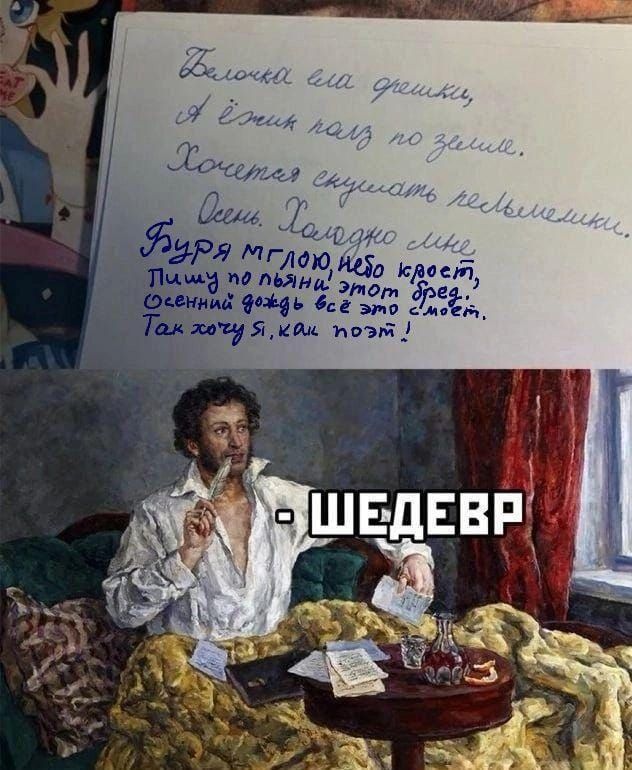 Белочка ела орешки,
А ёжик полз по земле.
Хочется скушать пельмешки.
Осень. Холодно мне
Буря мглою, небо кроет,
Пишу по пьяни этот бред.
Осенний дождь всё это смоет.
Так хочу Я, как поэт!
- ШЕДЕВР